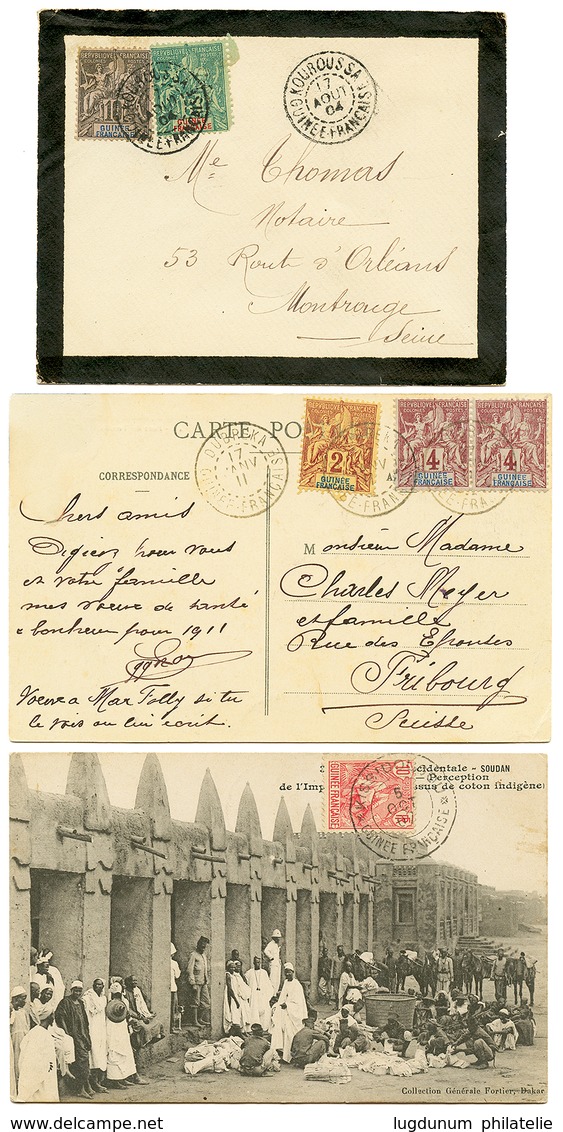 REPUBLIQUE FRANÇAISE
COLONIES POSTES
GUINÉE FRANÇAISE
REPUBLIQUE FRANÇAISE
COLONIES POSTES
GUINÉE FRANÇAISE
KOUROUSSA
17
AOUT
04
GUINÉE FRANÇAISE
Me Thomas
Notaire
53 Route d'Orléans
Montrouge
Seine
CARTE PO
DUBREKA
17
JANV
11
GUINÉE-FRANÇAISE
2
GUINÉE FRANÇAISE
4
GUINÉE FRANÇAISE
4
GUINÉE FRANÇAISE
CORRESPONDANCE
A
chers amis
pour vous
et votre famille
mes voeux de santé
& bonheur pour 1911
Voeux à Max Tolly si tu
le vois ou lui écrit.
Monsieur Madame
Charles Meyer
et famille
Rue des Epouses
Fribourg
Suisse
cidentale - SOUDAN
Perception
de l'Imp
ssus de coton indigène
10
GUINÉE FRANÇAISE
5
OCT
GUINÉE FRANÇAISE
Collection Générale Fortier, Dakar
www.delcampe.net
lugdunum philatelie